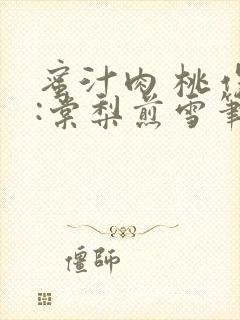 蜜汁肉桃作
:棠梨煎雪筆
僵師